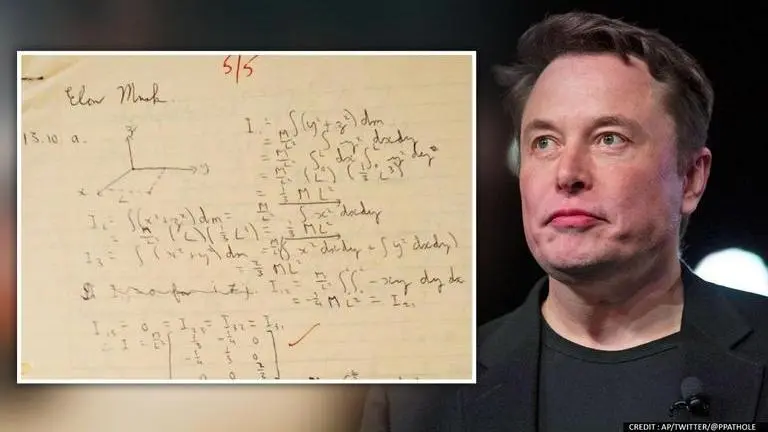 5/5
Elon Musk
13.10 a.
z
I₁ = ∫(y²+z²) dm
= M/L² ∫ y² dxdy
y
= M/L² ∫₀ᴸ dx ∫₀ᴸ y² dy
= M/L² (L) (1/3 L³)
x
L
= 1/3 ML²
I₂ = ∫(x²+z²) dm = M/L² ∫ x² dxdy
= M/L² (L)(1/3 L³) = 1/3 ML²
I₃ = ∫(x²+y²) dm = M/L² (∫ x² dxdy + ∫ y² dxdy)
= 2/3 ML²
I₁₂ = M/L² ∫₀ᴸ ∫₀ᴸ -xy dy dx
= -1/4 ML² = I₂₁
I₁₃ = 0 = I₂₃ = I₃₂ = I₃₁
∴ I = ML² [ 1/3 -1/4 0
-1/4 1/3 0
0 0 2/3
CREDIT : AP/TWITTER/@PPATHOLE